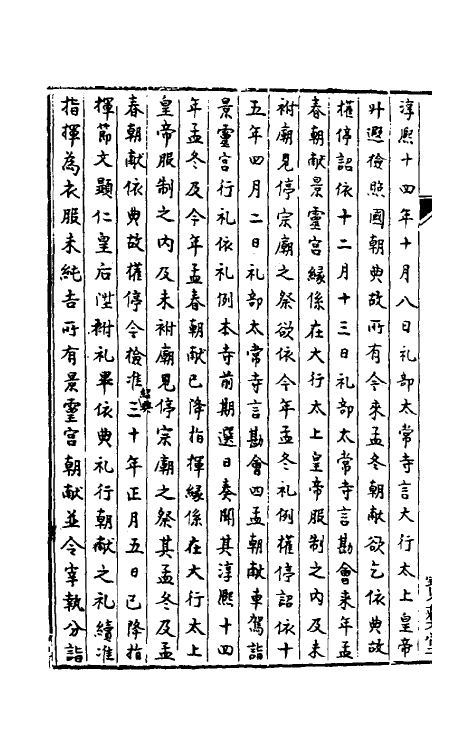 淳熙十四年十月八日礼部太常寺言大行太上皇帝
升遐檢照國朝典故所有今來孟冬朝獻欲乞依典故
權停詔依十二月十三日礼部太常寺言勘會来年孟
春朝獻景靈宮縁係在大行太上皇帝服制之内及未
祔廟見停宗廟之祭欲依今年孟冬礼例權停詔依十
五年四月二日礼部太常寺言勘會四孟朝獻車駕詣
景靈宮行礼依礼例本寺前期選日奏聞其淳熙十四
年孟冬及今年孟春朝獻已降指揮縁係在大行太上
皇帝服制之内及未祔廟見停宗廟之祭其孟冬及孟
春朝獻依典故權停今檢准紹興三十年正月五日已降指
揮節文顯仁皇后陞祔礼畢依典礼行朝獻之礼續准
指揮為衣服未純吉所有景靈宮朝獻並令宰執分詣